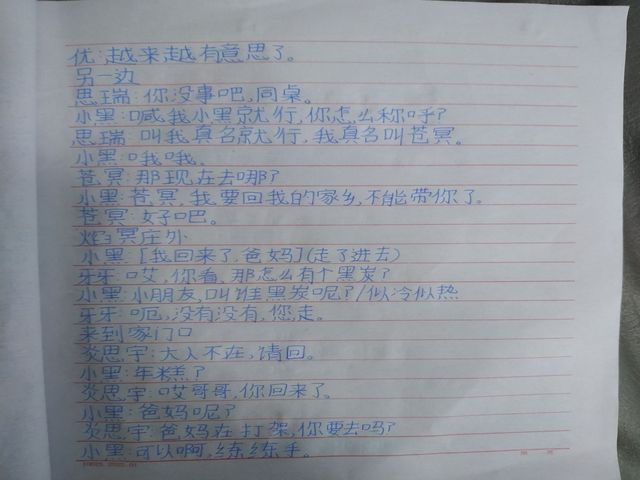 优:越来越有意思了。
另一边
思瑞:你没事吧,同桌。
小黑:喊我小黑就行,你怎么称呼?
思瑞:叫我真名就行,我真名叫苍冥。
小黑:哦哦、
苍冥:那现在去哪?
小黑:苍冥,我要回我的家乡,不能带你了。
苍冥:好吧。
焰冥庄外
小黑:[我回来了,爸妈](走了进去)
牙牙:哎,你看,那怎么有个黑炭?
小黑:小朋友,叫谁黑炭呢?/似冷似热
牙牙:呃,没有没有,您走。
来到家门口
炎思宇:大人不在,请回。
小黑:年糕?
炎思宇:哎哥哥,你回来了。
小黑:爸妈呢?
炎思宇:爸妈在打架,你要去吗?
小黑:可以啊,练练手。